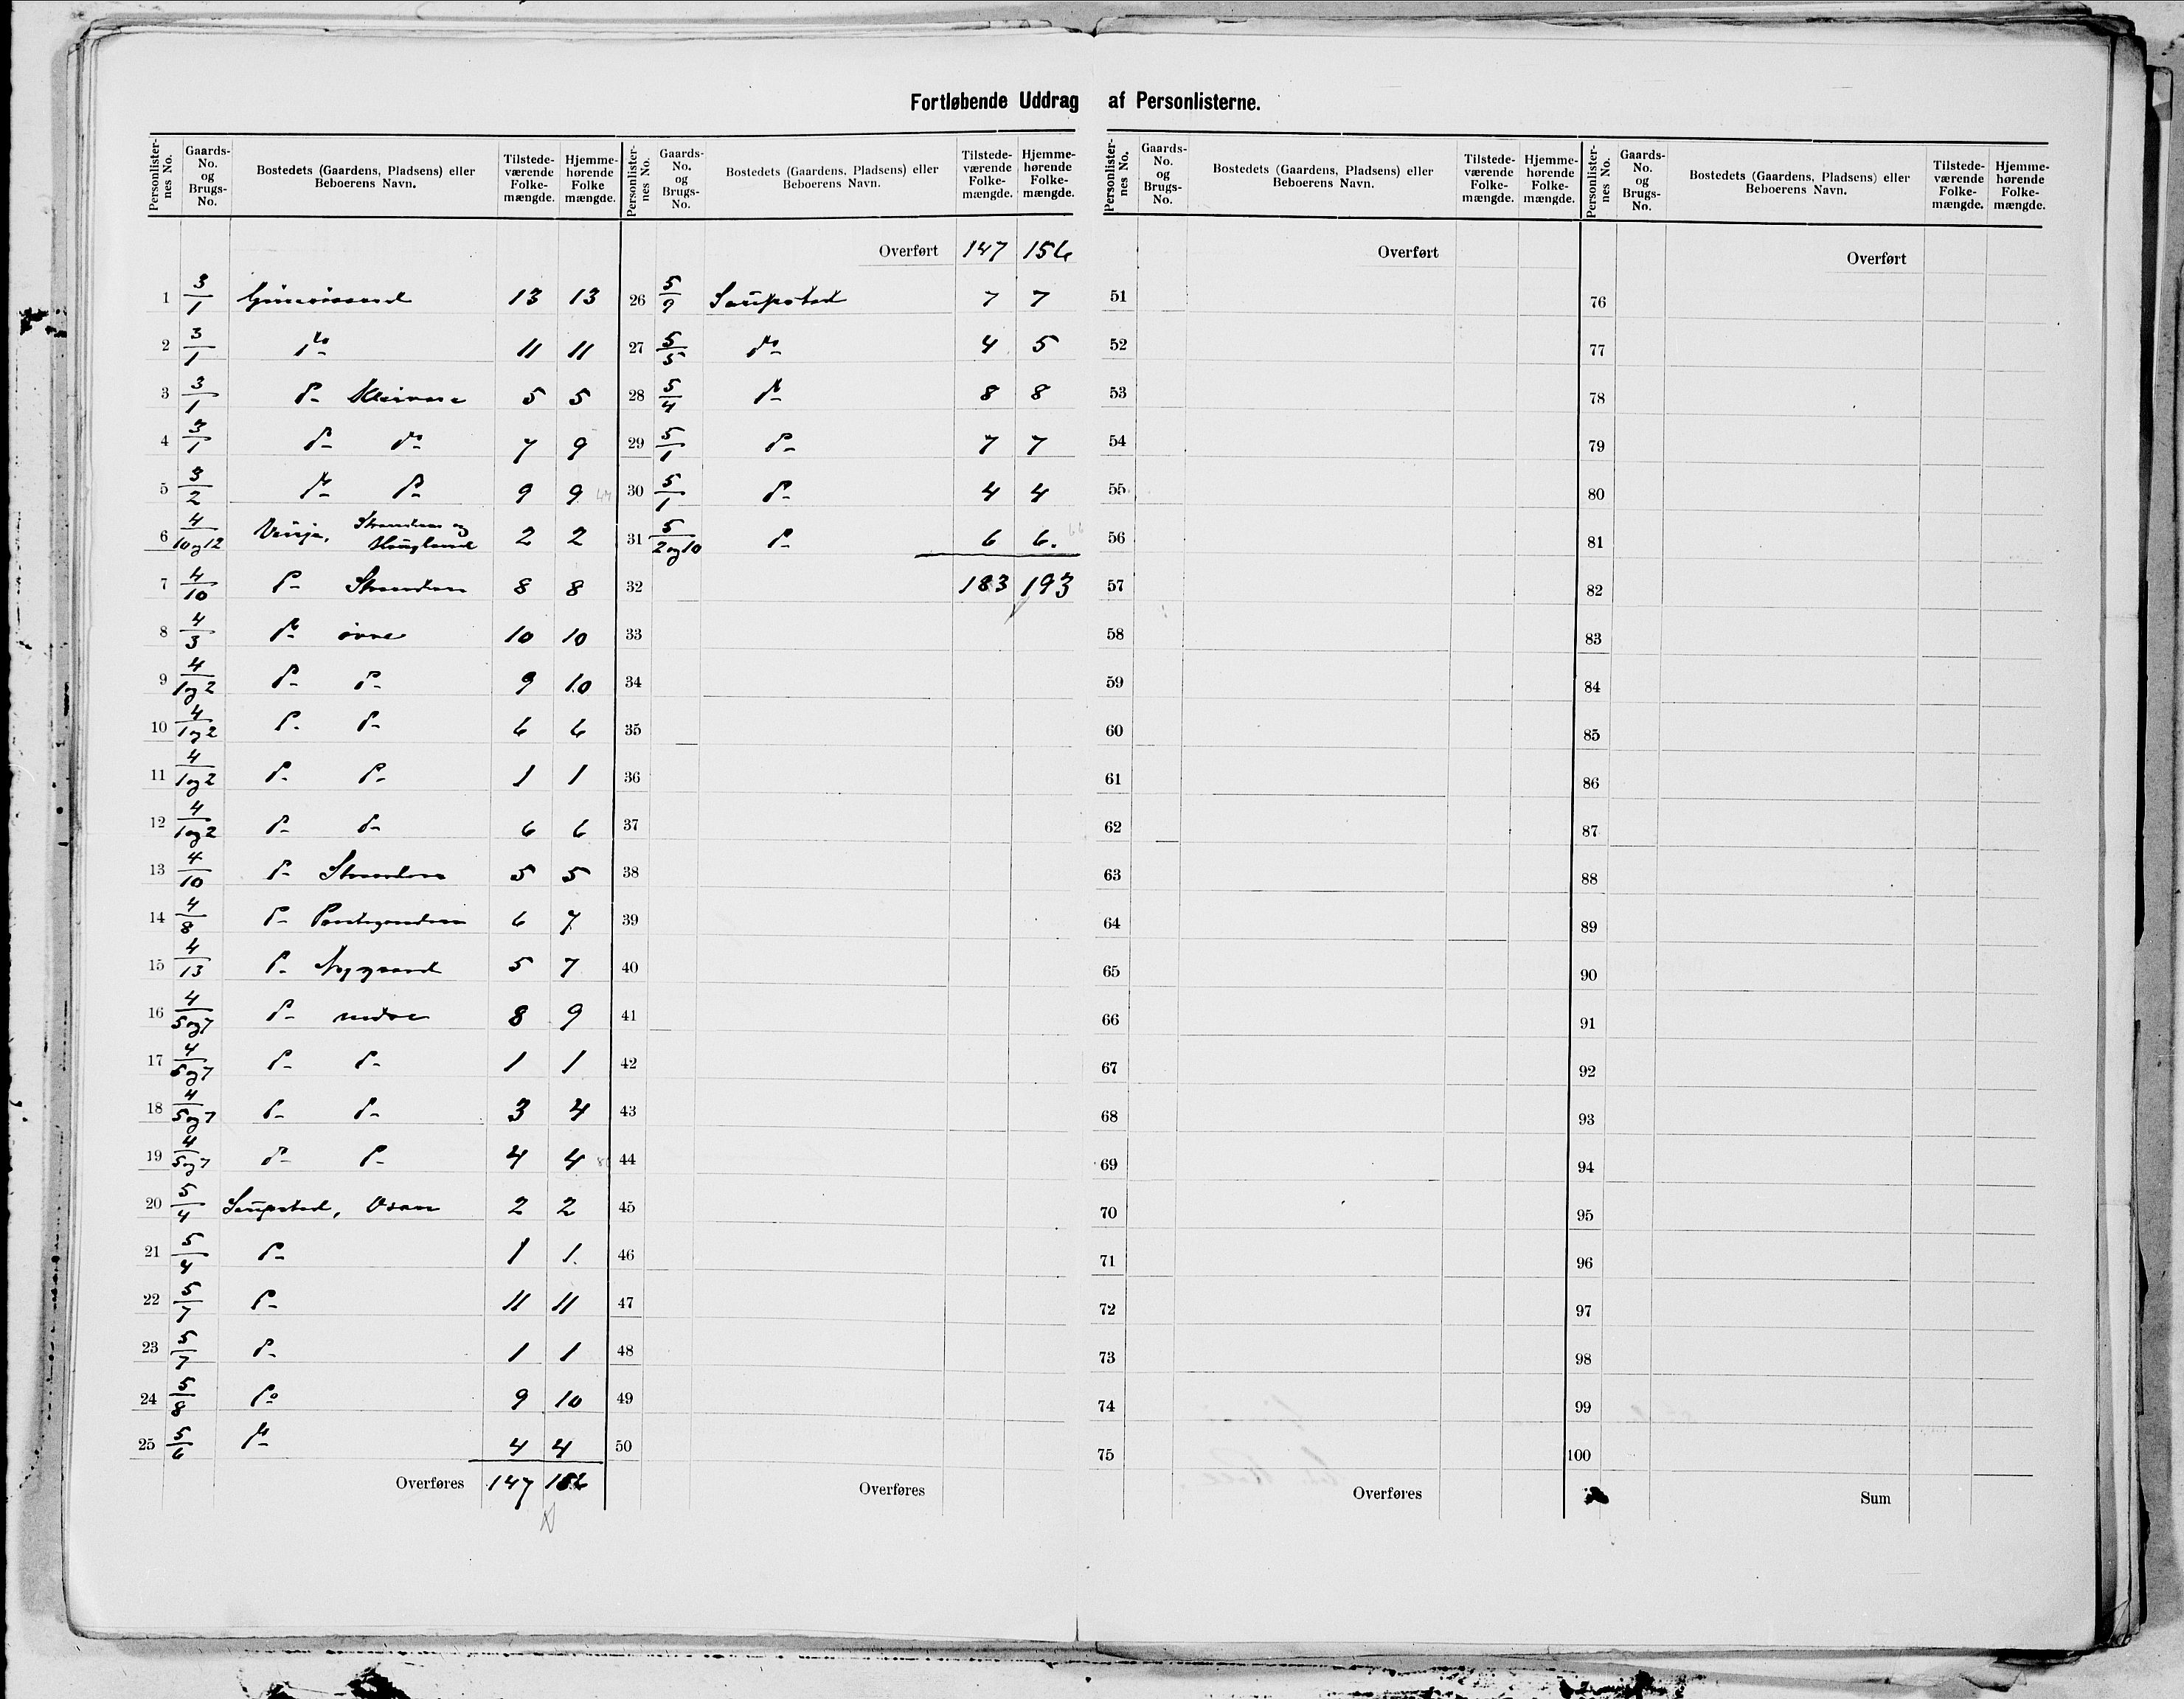 Fortløbende Uddrag af Personlisterne.
Personlisternes No. Gaards-No. og Brugs-No. Bostedets (Gaardens, Pladsens) eller Beboerens Navn. Tilstedeværende Folkemængde. Hjemmehørende Folkemængde.
1 3/1 Gimsösand 13 13
2 3/1 do 11 11
3 3/1 do Kleivane 5 5
4 3/1 do do 7 9
5 3/2 do do 9 9
6 4/10og12 Vinje, Stranden og Haugland 2 2
7 4/10 do Stranden 8 8
8 4/3 do övre 10 10
9 4/1og2 do do 9 10
10 4/1og2 do do 6 6
11 4/1og2 do do 1 1
12 4/1og2 do do 6 6
13 4/10 do Stranden 5 5
14 4/8 do 6 7
15 4/13 do Nygaard 5 7
16 4/5og7 do nedre 8 9
17 4/5og7 do do 1 1
18 4/5og7 do do 3 4
19 4/5og7 do do 4 4
20 5/4 Saupstad, Osan 2 2
21 5/4 do 1 1
22 5/7 do 11 11
23 5/7 do 1 1
24 5/8 do 9 10
25 5/6 do 4 4
Overføres 147 156
Personlisternes No. Gaards-No. og Brugs-No. Bostedets (Gaardens, Pladsens) eller Beboerens Navn. Tilstedeværende Folkemængde. Hjemmehørende Folkemængde.
Overført 147 156
26 5/9 Saupstad 7 7
27 5/5 do 4 5
28 5/4 do 8 8
29 5/1 do 7 7
30 5/1 do 4 4
31 5/2og10 do 6 6.
32 183 193
33
34
35
36
37
38
39
40
41
42
43
44
45
46
47
48
49
50
Overføres
Personlisternes No. Gaards-No. og Brugs-No. Bostedets (Gaardens, Pladsens) eller Beboerens Navn. Tilstedeværende Folkemængde. Hjemmehørende Folkemængde.
Overført
51
52
53
54
55
56
57
58
59
60
61
62
63
64
65
66
67
68
69
70
71
72
73
74
75
Overføres
Personlisternes No. Gaards-No. og Brugs-No. Bostedets (Gaardens, Pladsens) eller Beboerens Navn. Tilstedeværende Folkemængde. Hjemmehørende Folkemængde.
Overført
76
77
78
79
80
81
82
83
84
85
86
87
88
89
90
91
92
93
94
95
96
97
98
99
100
Sum